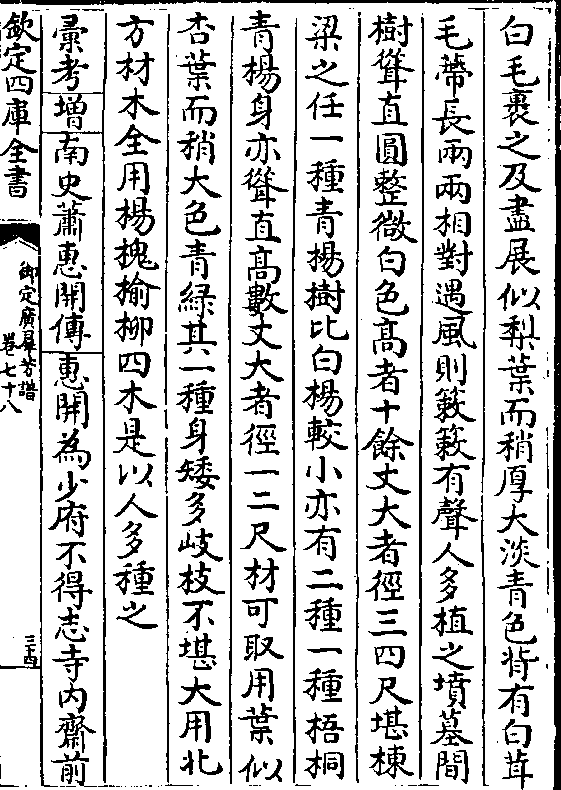 白毛裹之及盡展似梨葉而稍厚大淡青色背有白茸
毛蔕長兩兩相對遇風則簌簌有聲人多植之墳墓間
樹聳直圓整微白色髙者十餘丈大者徑三四尺堪棟
梁之任一種青楊樹比白楊較小亦有二種一種梧桐
青楊身亦聳直髙數丈大者徑一二尺材可取用葉似
杏葉而稍大色青緑其一種身矮多岐枝不堪大用北
方材木全用楊槐榆柳四木是以人多種之
彚考增南史蕭惠開傳惠開為少府不得志寺内齋前
欽定四庫全書
御定廣羣芳譜
卷七十八
三十四